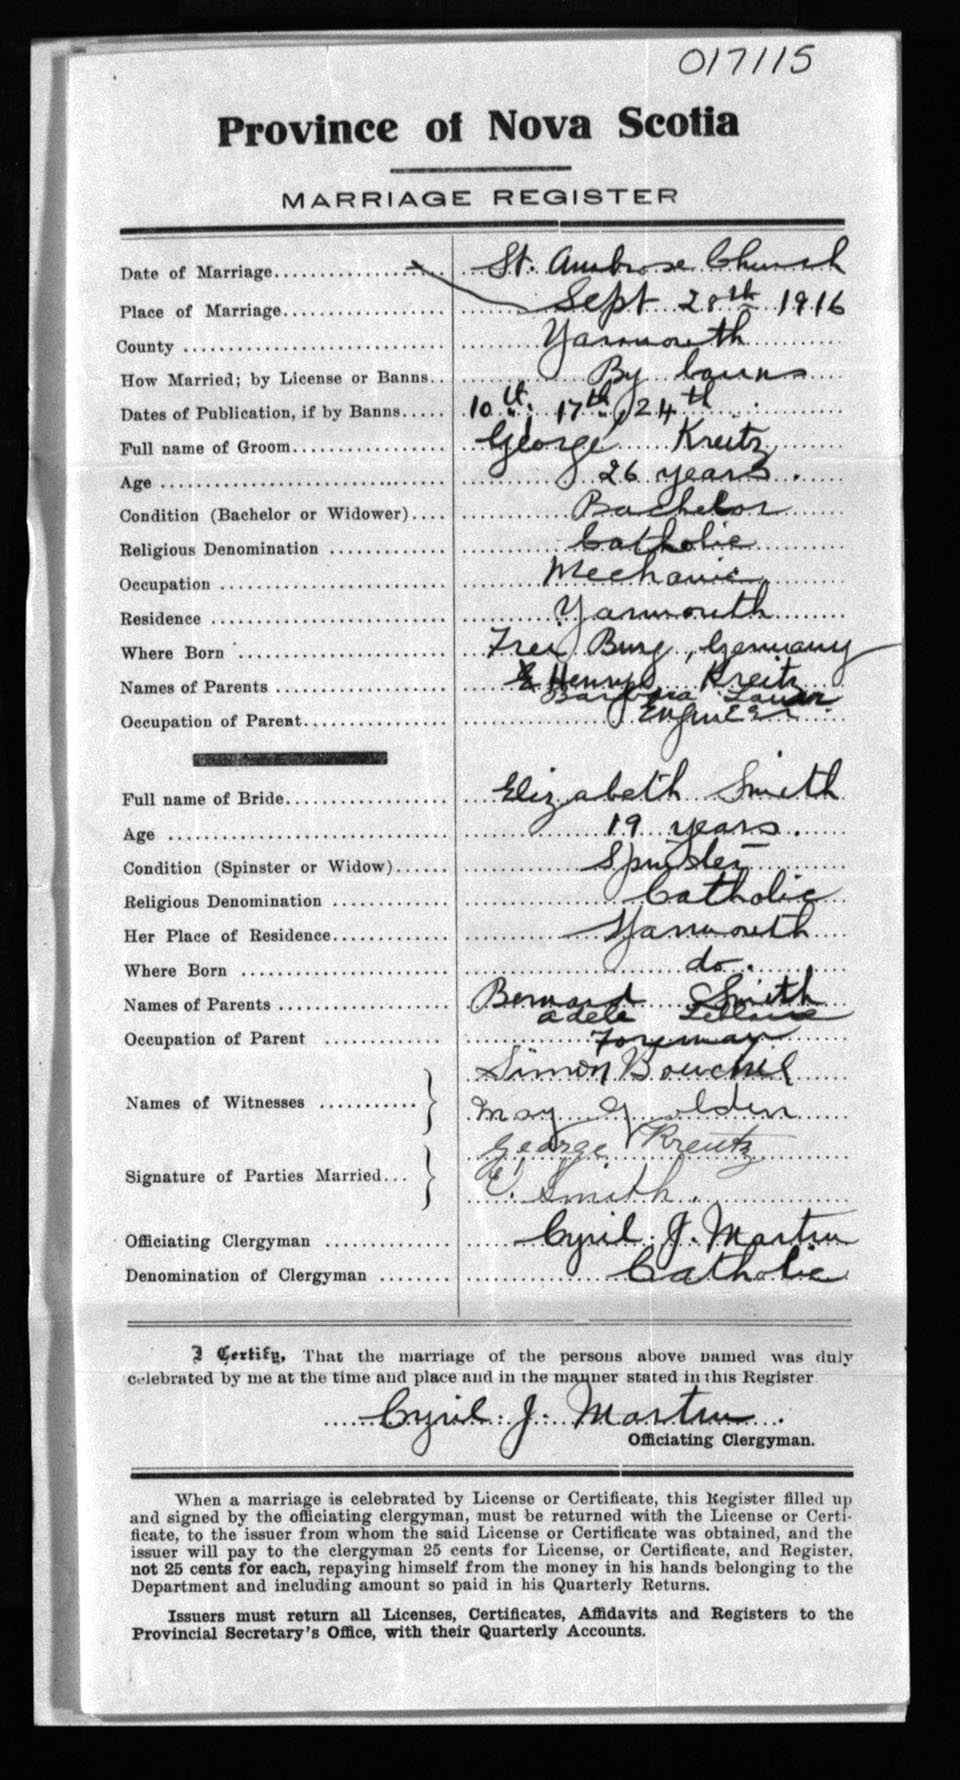 017115
Province of Nova Scotia
MARRIAGE REGISTER
Date of Marriage St. Ambrose Church
Place of Marriage Sept 28th 1916
County Yarmouth
How Married; by License or Banns.. By banns
Dates of Publication, if by Banns 10th 17th 24th
Full name of Groom George Kreitz
Age 26 years.
Condition (Bachelor or Widower) Bachelor
Religious Denomination Catholic
Occupation Mechanic
Residence Yarmouth
Where Born Frei Burg, Germany
Names of Parents Henry Kreitz
Barbara
Occupation of Parent Engineer
Full name of Bride Elizabeth Smith
Age 19 years.
Condition (Spinster or Widow) Spinster
Religious Denomination Catholic
Her Place of Residence Yarmouth
Where Born do.
Names of Parents Bernard Smith
Adele
Occupation of Parent Foreman
Names of Witnesses Simon
May Golden
Signature of Parties Married... George Kreutz
E. Smith.
Officiating Clergyman Cyril J. Martin
Denomination of Clergyman Catholic
I Certify, That the marriage of the persons above named was duly
celebrated by me at the time and place and in the manner stated in this Register
Cyril J. Martin.
Officiating Clergyman.
When a marriage is celebrated by License or Certificate, this Register filled up
and signed by the officiating clergyman, must be returned with the License or Certi-
ficate, to the issuer from whom the said License or Certificate was obtained, and the
issuer will pay to the clergyman 25 cents for License, or Certificate, and Register,
not 25 cents for each, repaying himself from the money in his hands belonging to the
Department and including amount so paid in his Quarterly Returns.
Issuers must return all Licenses, Certificates, Affidavits and Registers to the
Provincial Secretary's Office, with their Quarterly Accounts.